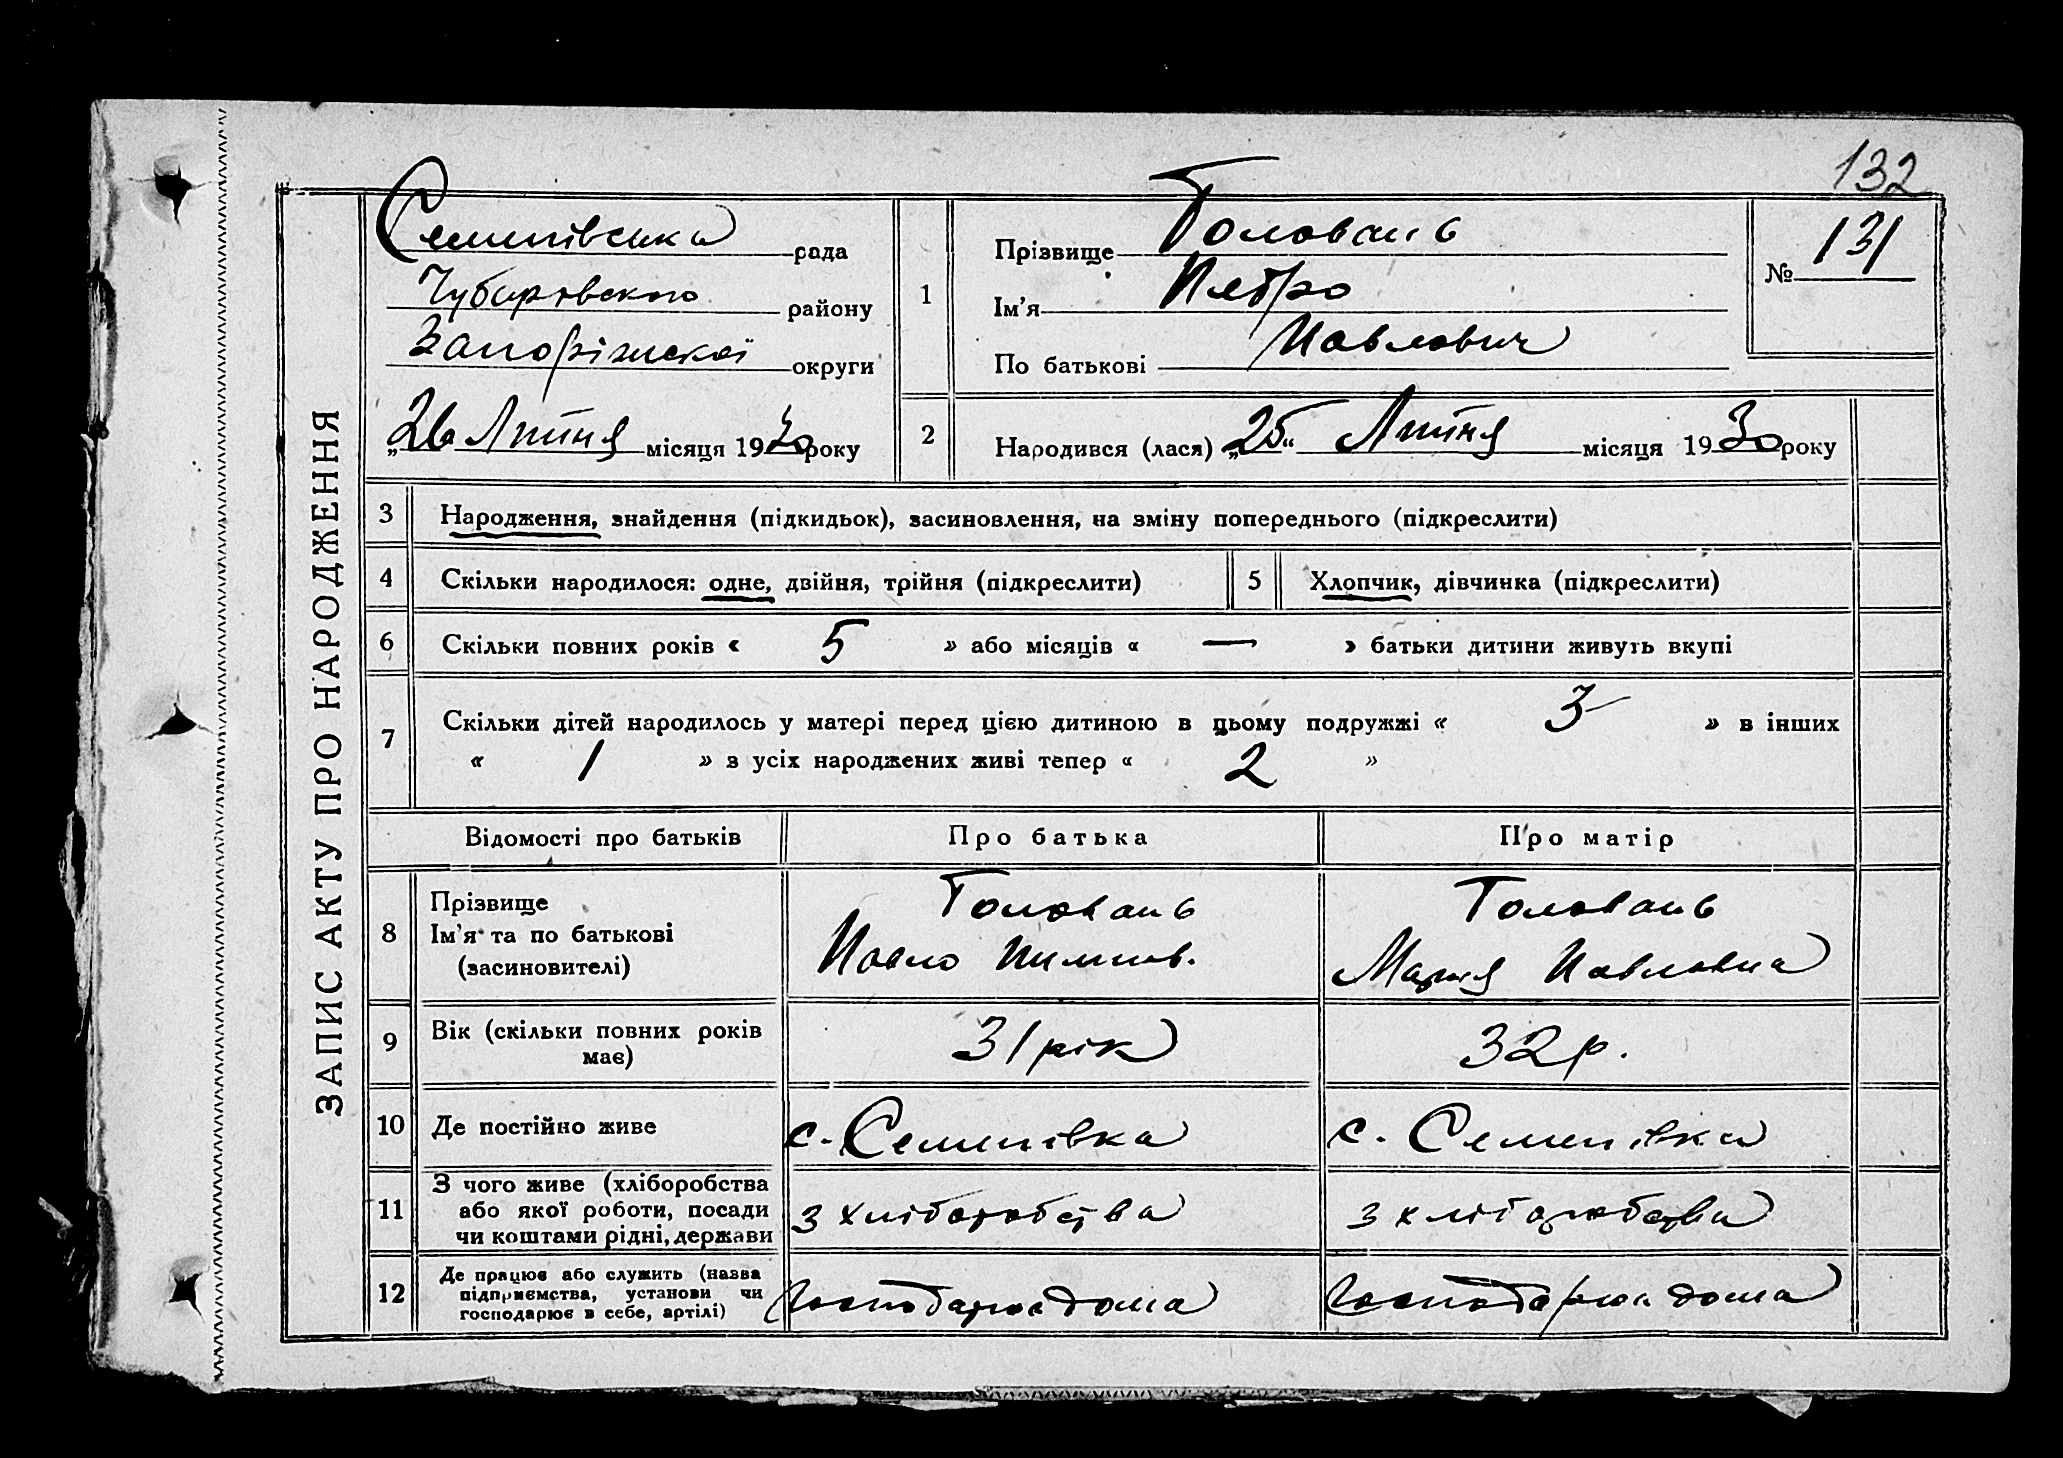 132
ЗАПИС АКТУ ПРО НАРОДЖЕННЯ
Семенівська рада
Чубарівського району
Запоріжської округи
„26 Липня місяця 1930 року
1
Прізвище Головань
Ім'я Петро
По батькові Павлович
№ 131
2
Народився (лася) „25“ Липня місяця 1930 року
3 Народження, знайдення (підкидьок), засиновлення, на зміну попереднього (підкреслити)
4 Скільки народилося: одне, двійня, трійня (підкреслити)
5 Хлопчик, дівчинка (підкреслити)
6 Скільки повних років « 5 » або місяців « — » батьки дитини живуть вкупі
7 Скільки дітей народилось у матері перед цією дитиною в цьому подружжі « 3 » в інших
« 1 » з усіх народжених живі тепер « 2 »
Відомості про батьків Про батька Про матір
8
Прізвище
Ім'я та по батькові
(засиновителі)
Головань
Павло
Головань
Мария Павловна
9
Вік (скільки повних років
має)
31 рік
32 р.
10 Де постійно живе
с. Семенівка
с. Семенівка
11
З чого живе (хліборобства
або якої роботи, посади
чи коштами рідні, держави
з хліборобства
з хліборобства
12
Де працює або служить (назва
підприємства, установи чи
господарює в себе, артілі)
Господарює дома
Господарює дома